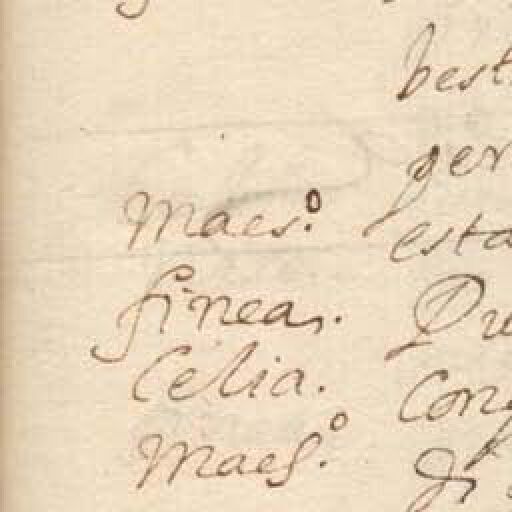 best
ger
Maes.º esta
finea. Qu
Celia. Con
Maes.º di